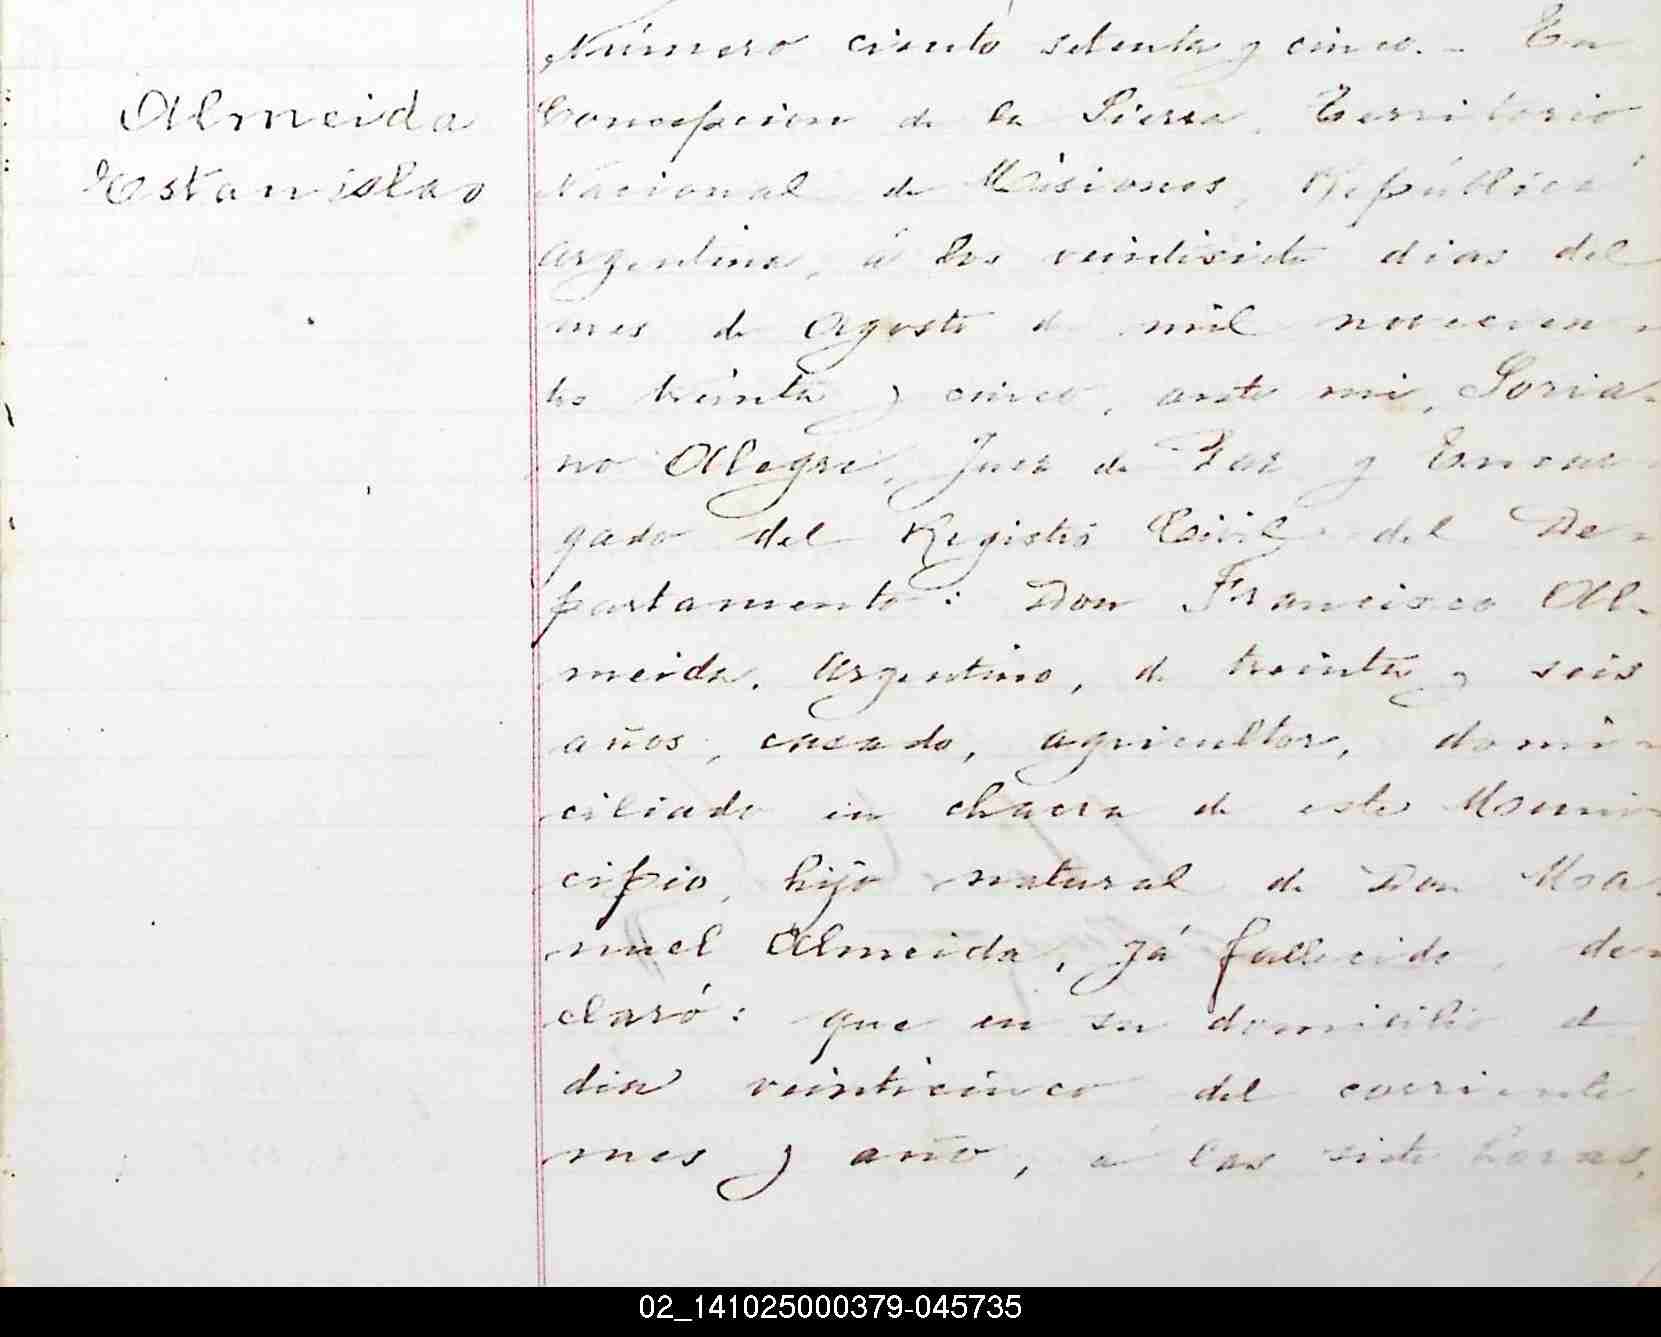 Número ciento setenta y cinco.- En
Almeida
Estanislao
Concepcion de la Sierra, Territorio
Nacional de Misiones, República
Argentina, á los veintisiete dias del
mes de Agosto de mil novecien-
tos treinta y cinco, ante mi, Soria-
no Alegre, Juez de Paz y Encar-
gado del Registro Civil del De-
partamento: Don Francisco Al-
meida, Argentino, de treinta y seis
años, casado, agricultor, domi-
ciliado en chacra de este Muni-
cipio, hijo natural de Don Ma-
nuel Almeida, já fallecido, de-
claró: que en su domicilio el
dia veinticinco del corriente
mes y año, á las siete horas,
02_141025000379-045735